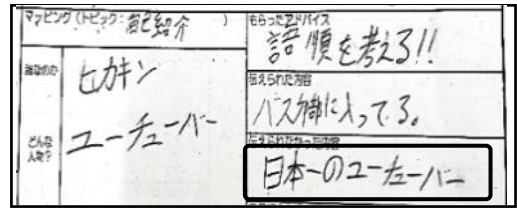 マッピング（トピック：自己紹介 ）
誰なのか
ヒカキン
どんな人物？
ユーチューバー
もらったアドバイス
語順を考える!!
伝えられた内容
バスケ部に入ってる。
伝えられなかった内容
日本一のユーチューバー